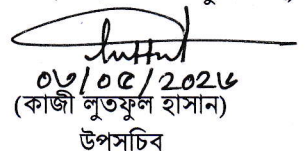 ০৬/০৫/২০২৬
(কাজী লুতফুল হাসান)
উপসচিব